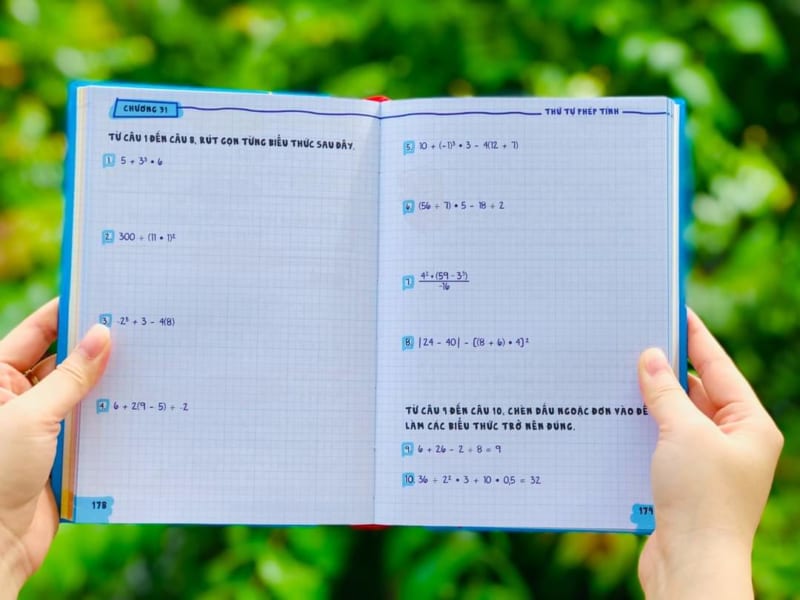 CHƯƠNG 31
TỪ CÂU 1 ĐẾN CÂU 8, RÚT GỌN TỪNG BIỂU THỨC SAU ĐÂY.
1. 5 + 3³ • 6
2. 300 ÷ (11 • 1)²
3. -2⁵ + 3 - 4(8)
4. 6 + 2(9 - 5) ÷ -2
178
THỨ TỰ PHÉP TÍNH
5. 10 + (-1)³ • 3 - 4(12 + 7)
6. (56 ÷ 7) • 5 - 18 ÷ 2
7. 4² • (59 - 3³)
-16
8. |24 - 40| - [(8 + 6) • 4]²
TỪ CÂU 9 ĐẾN CÂU 10, CHÈN DẤU NGOẶC ĐƠN VÀO ĐỂ
LÀM CÁC BIỂU THỨC TRỞ NÊN ĐÚNG.
9. 6 + 26 - 2 ÷ 8 = 9
10. 36 ÷ 2² • 3 + 10 • 0,5 = 32
179